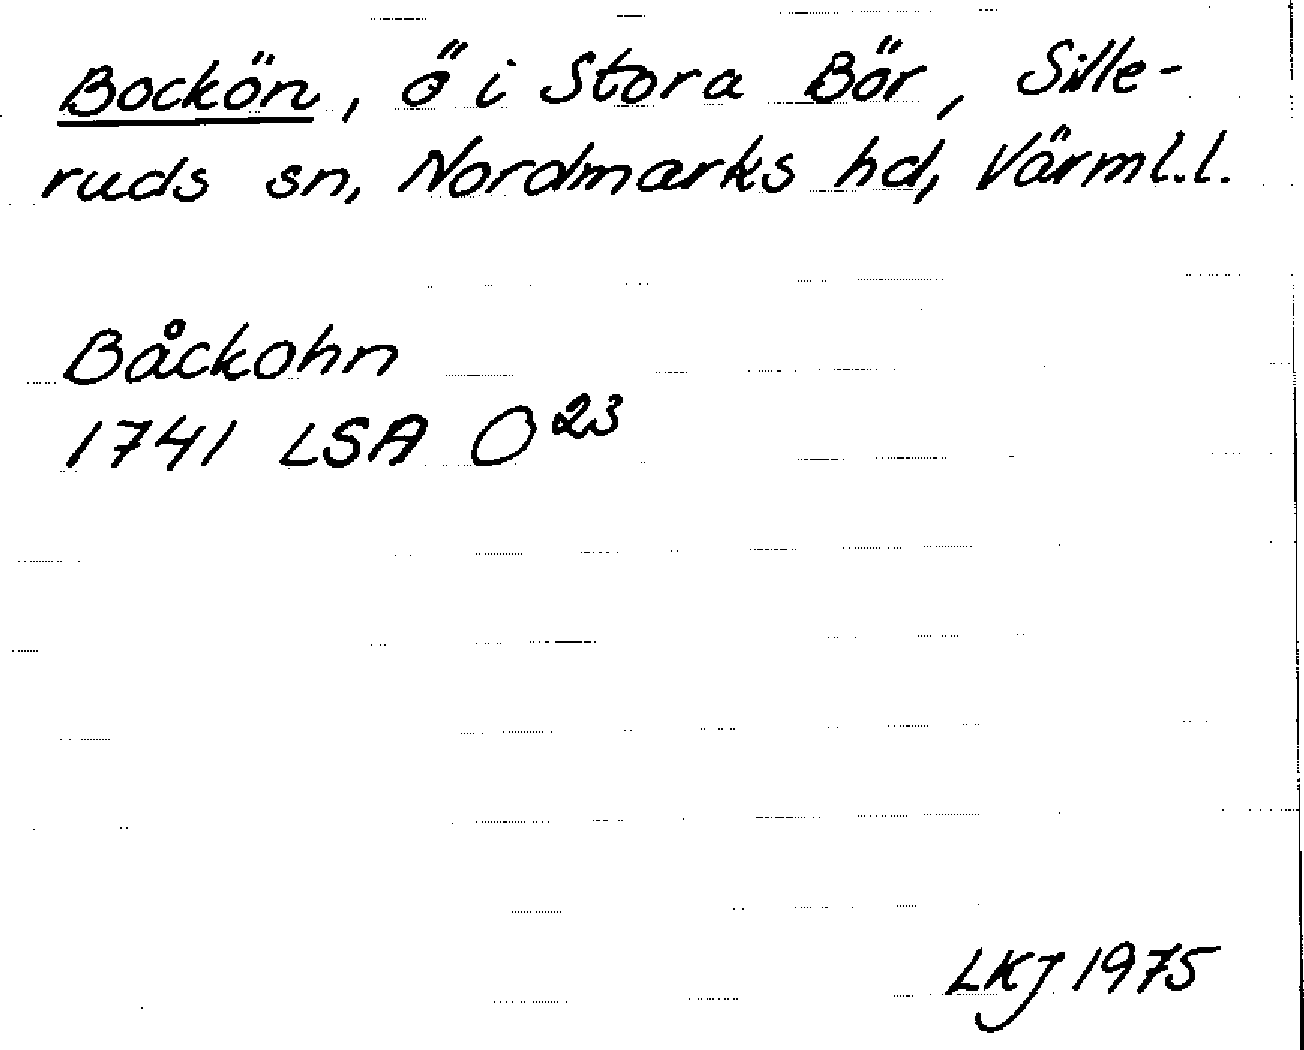 Bockön, ö i Stora Bör, Sille-
ruds sn, Nordmarks hd, Värml.l.
Båckohn
1741 LSA O 23
LKJ 1975